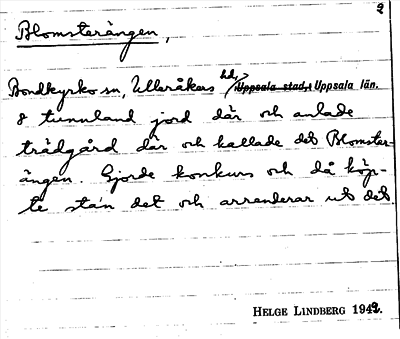 2
Blomsterängen,
Bondkyrko sn, Ulleråkers hd, Uppsala stad, Uppsala län.
8 tunnland jord där och anlade
trädgård där och kallade det Blomster-
ängen. Gjorde konkurs och då köp-
te sta'n det och arrenderar ut det.
HELGE LINDBERG 1942.